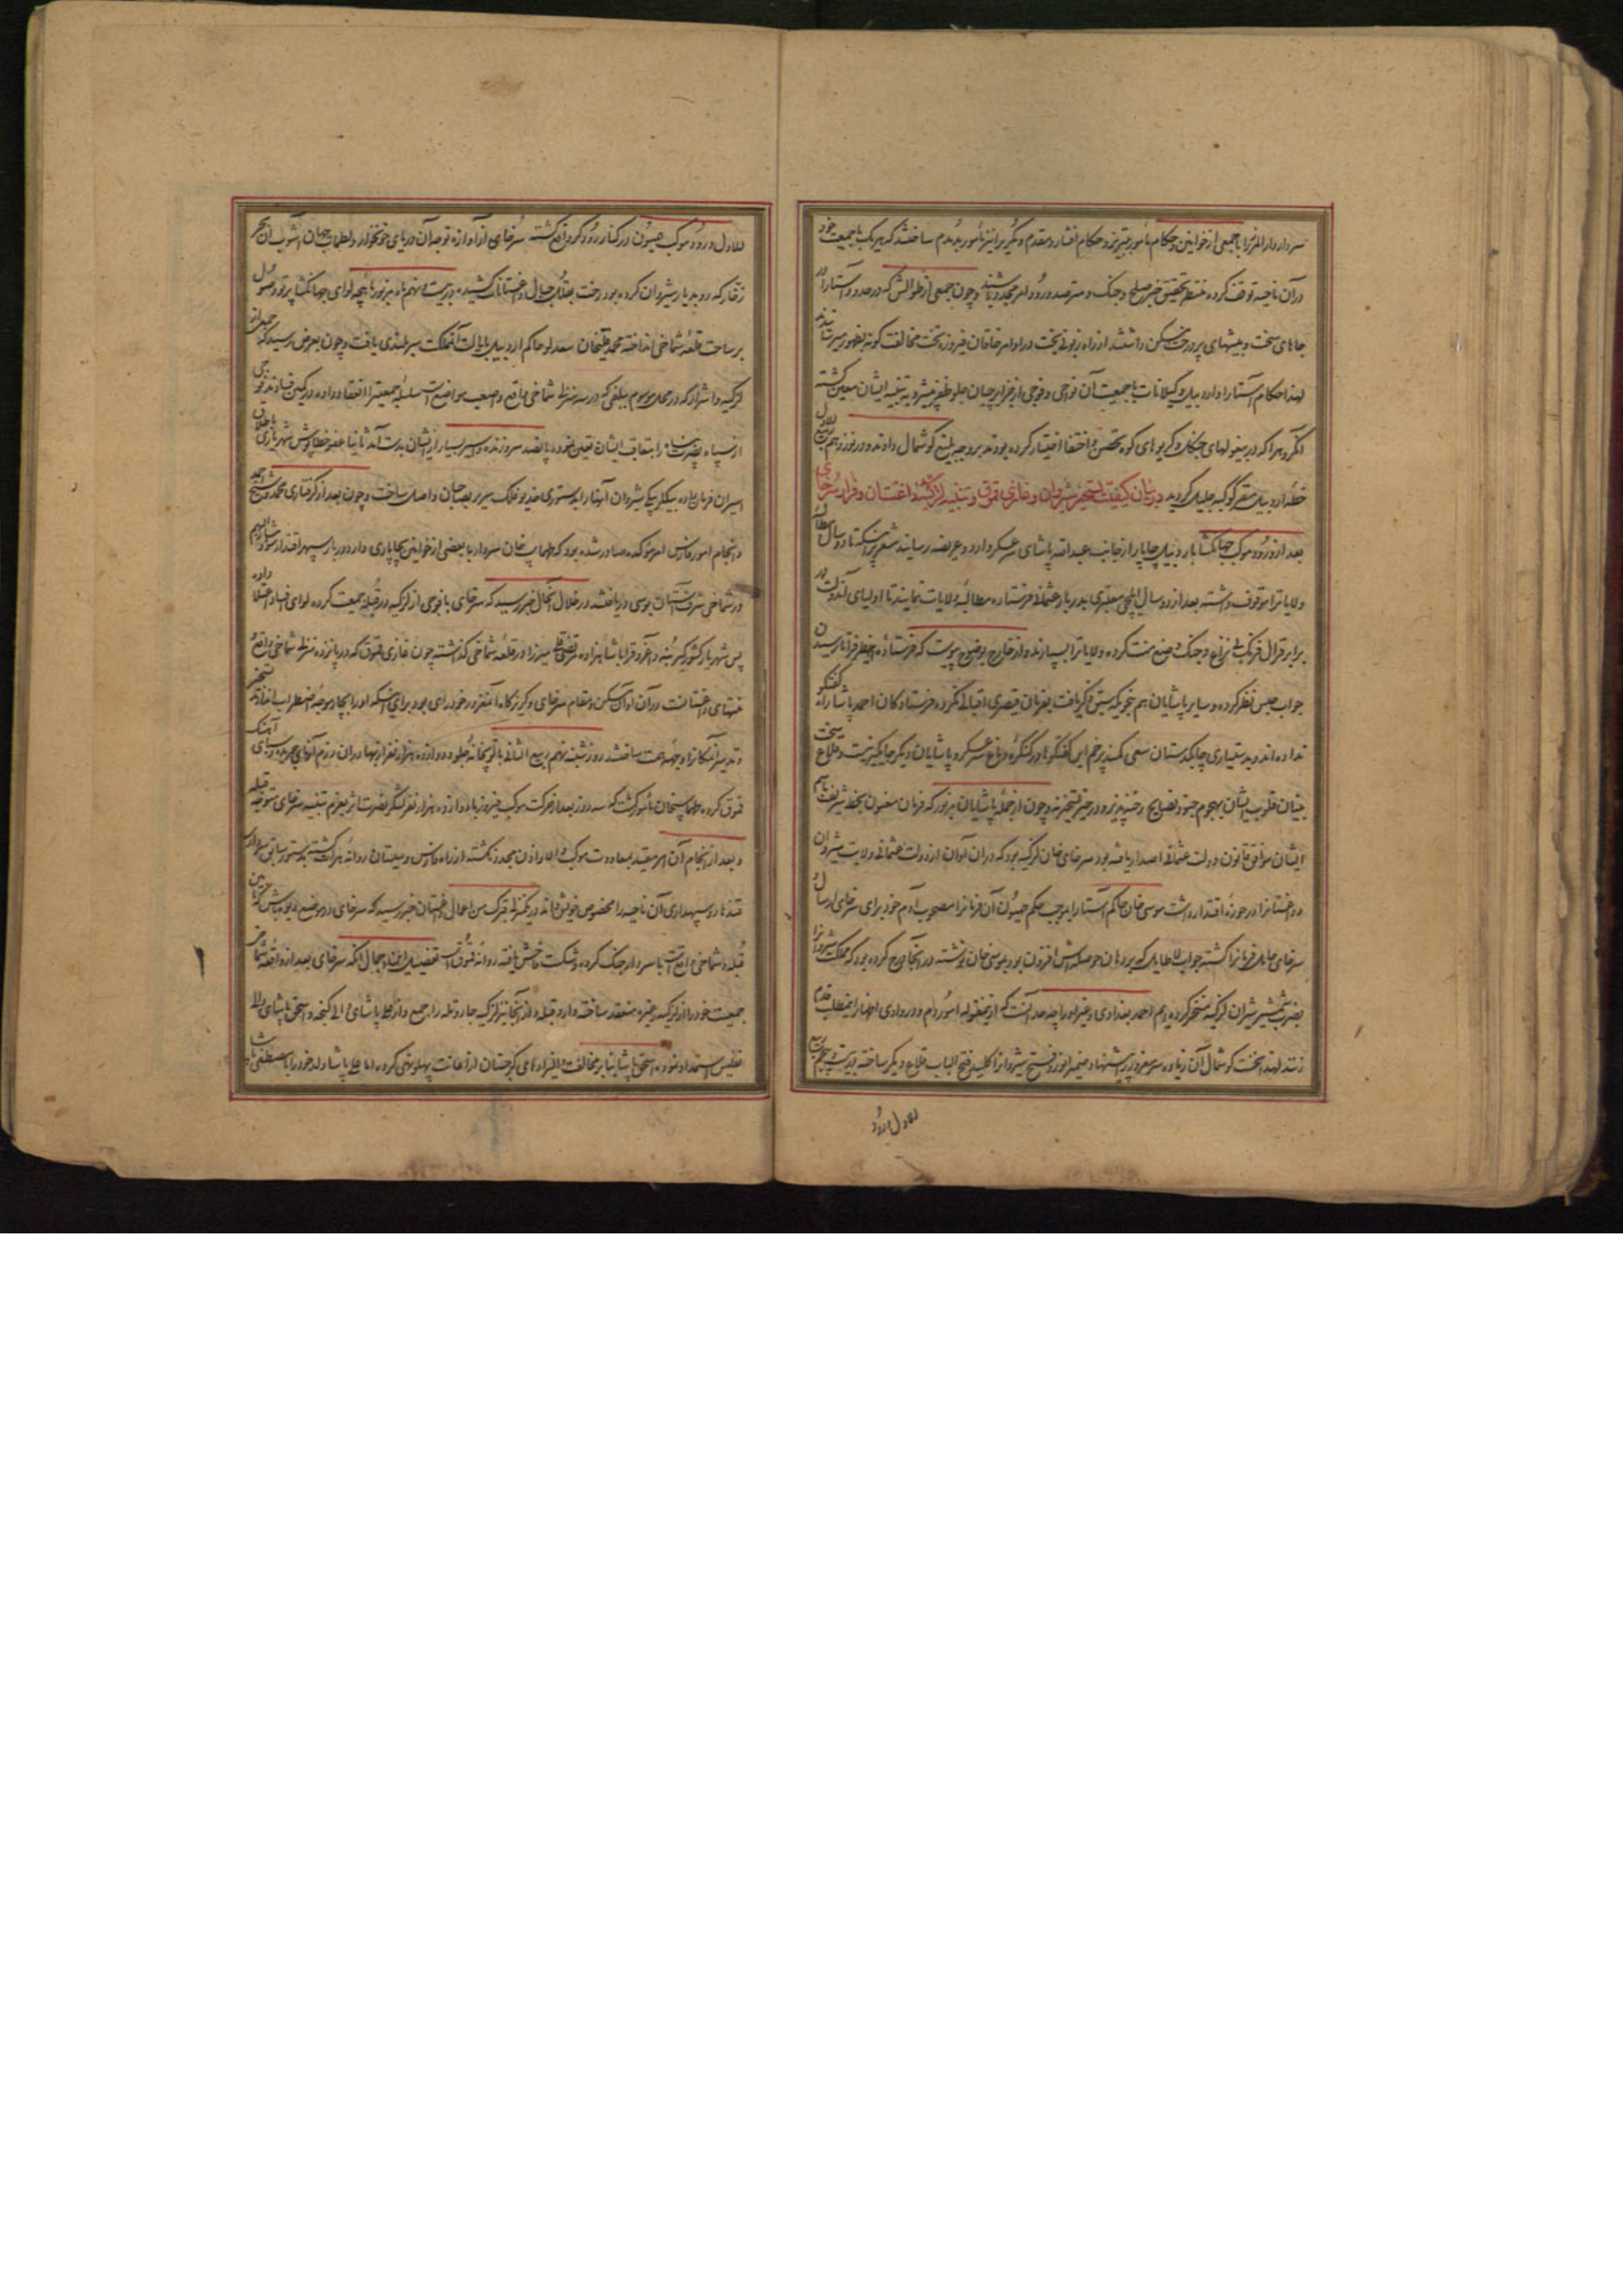 سردار دارالمرز را با جمعی از خوانین و حکام مأمور تبریز و حکام افشار و مقدم و دیگر برانیز مأمور بدندم ساختند که هر یک با جمعیت خود
در آن ناحیه توقف کرده منتظر تحقیق خبر صلح و جنک و مترصد ورود امر مجدد باشند و چون جمعی از طوالش که در حدود آستارا در
جاهای سخت و بیشهای پر درخت مسکن داشتند از راه زبونی بخت در اوامر خاقان فیروز بخت مخالفت کونه بظهور میرسانیدند
لهذا حکام آستارا و اردبیل و کیلانات با جمعیت آن نواحی و فوجی از جزایرچیان جلو ظفر پیشرو به تنبیه ایشان معین کشته
آنکروه را که در بیغولهای جنکل و کریوهای کوه تحصن و اختفا اختیار کرده بودند بر وجه بلیغ کوشمال دادند و در نوزدهم ربیع الاول
خطه اردبیل مقر کوکبه جلیل کردید در بیان کیفیت تسخیر شیروان و غازی قموق و تنبیه لزکیه داغستان و فرار سرخای
بعد از ورود موکب جهانکشا باردبیل چاپار از جانب عبدالله پاشای سرعسکر وارد و عریضه رسانید مشعر بر اینکه تا دو سال مطالبه
ولایات را موقوف داشته بعد از دو سال ایلچی معتبری بدربار عثمانی فرستاده مطالبه ولایات نمایند تا اولیای آندولت در
برابر قرال فرنک بی نزاع و جنک وضع منت کرده ولایات را بسپارند و از خارج بوضوح پیوست که فرستاده
جواب حبس نظر کرده و سایر پاشایان هم بفرمان قیصری اقبال نکرده فرستادکان احمد پاشا راه کفتکو
نداده اند و بدستیاری چابکدستان سعی
بنیان قلوب ایشان بهجوم جنود نصایح رخنه پذیر و در حیز تسخیر نه و چون از جمله پاشایان مزبور که فرمان
ایشان موافق قانون دولت عثمانی اصدار یافته بود سرخای خان لزکیه بود که در آن اوان از دولت عثمانی ولایت شیروان
و داغستان را در حوزه اقتدار داشت موسی خان حاکم آستارا بموجب حکم همیون آن فرمان را مصحوب آدم خود برای سرخای ارسال
سرخای حامل فرمان را کشته جواب لاطایل که بر دهان حوصله اش افزون بود بموسی خان نوشته در آنجا درج کرده بود که مملکت شیروان را
بضرب شمشیر شیران لزکیه مسخر کرده ایم احمد بغدادی و غیر او را چه حد آنست که از اینمقوله امور دم و در وادی اظهار اینمطلب قدم
زنند لهذا نخست کوشمال آن زیاده سر مغرور پیشنهاد ضمیر انور و فتح شیروان را کلید فتح الباب قلاع دیکر ساخته در بیست و پنجم ربیع
الاول ورود
الاول ورود موکب همیون در کنار رود کر واقع کشته سرخای از آوازه توجه آن دریای خونخوار و تلطمات جهان آشوب آن بحر
زخار که رو بدیار شیروان کرده بود رخت بقلل جبال داغستانات کشیده در بیست و نهم ماه مزبور ماهچه لوای جهانکشا پرتو وصول
بر ساحت قلعه شماخی انداخته محمد قلیخان سعدلو حاکم اردبیل بایالت آنمملکت سربلندی یافت و چون بعرض رسید که جمعی از
لزکیه و اشرار که در محل موسوم که در سه منزل شماخی واقع و اصعب مواضع است سلسله جمعیت را انعقاد داده در کمین فسادند فوجی
از سپاه نصرت پناه را بتعاقب ایشان تعین نموده پانصد سر و زنده و اسیر بسیار از ایشان بدست آمد ثانیا عفو خطاپوش شهریاری باطلاق
اسیران فرمان داده بیکلربیکی شیروان آنها را بدستوری خدیو فلک سریر بصاحبان و اصل ساخت و چون بعد از کرفتاری محمد و شیخ احمد
و انجام امور فارس امر مؤکد صادر شده بود که طهماسب خان سردار با بعضی از خوانین بچاپاری وارد دربار سپهر اقتدار شوند مشارالیهم
در شماخی شرف آستان بوسی دریافتند در خلال آنحال خبر رسید که سرخای با فوجی از لزکیه در قبله جمعیت کرده لوای فساد اعتلا داده
پس شهریار کشورکیر بنه و اغروق را با شاهزاده مرتضی قلی میرزا در قلعه شماخی کذاشته چون غازی قموق که در پانزده منزلی شماخی واقع و
منتهای داغستانست در آن اوان مسکن و مقام سرخای و کریزکاه آن مغرور خود رای بود برای اینکه او را بجادر موجه اضطراب اندازند تسخیر
و تدمیر آنمکان را وجهه همت ساختند روز شنبه نهم ربیع الثانی با توپخانه جلو و دوازده هزار نفر از بهادران رزم آزمای جریده و سبای آهنک
قموق کرده طهماسبخان مأمور کشت که سه روز بعد از حرکت موکب فیروز با دوازده هزار نفر لشکر نصرت اثر بعزم تنبیه سرخای متوجه قبله
و بعد از انجام آن امر مقید بمعاودت موکب والا و اذن مجدد نکشته از راه فارس و سیستان روانه هرات کشته بدستور سابق سردار
قندهار و سپهداری آن ناحیه را مخصوص خویش داند در یکمنزلی قبرک من اعمال داغستان خبر رسید که سرخای در موضع دیوه باتان که مابین
قبله و شماخی واقع است با سردار جنک کرده و شکست فاحش یافته روانه قموق است تفصیل این اجمال آنکه سرخای بعد از واقعه شماخی
جمعیت خود را از لزکیه و غیره منعقد ساخته وارد قبله و از آنجا نیز لزکیه جار و تله را جمع و از علی پاشای والی کنجه و اسحق پاشای والی
تفلیس استمداد نموده اسحق پاشا بنا بر مخالفت کرجستان از اعانت پهلو تهی کرده اما علی پاشا ولد خود را با مصطفی پاشا